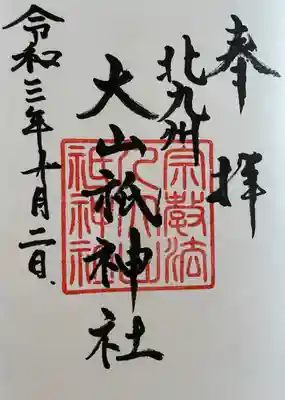 奉拝
北九州
大山祇神社
宗教法
人大山
祇神社
令和三年十月二日